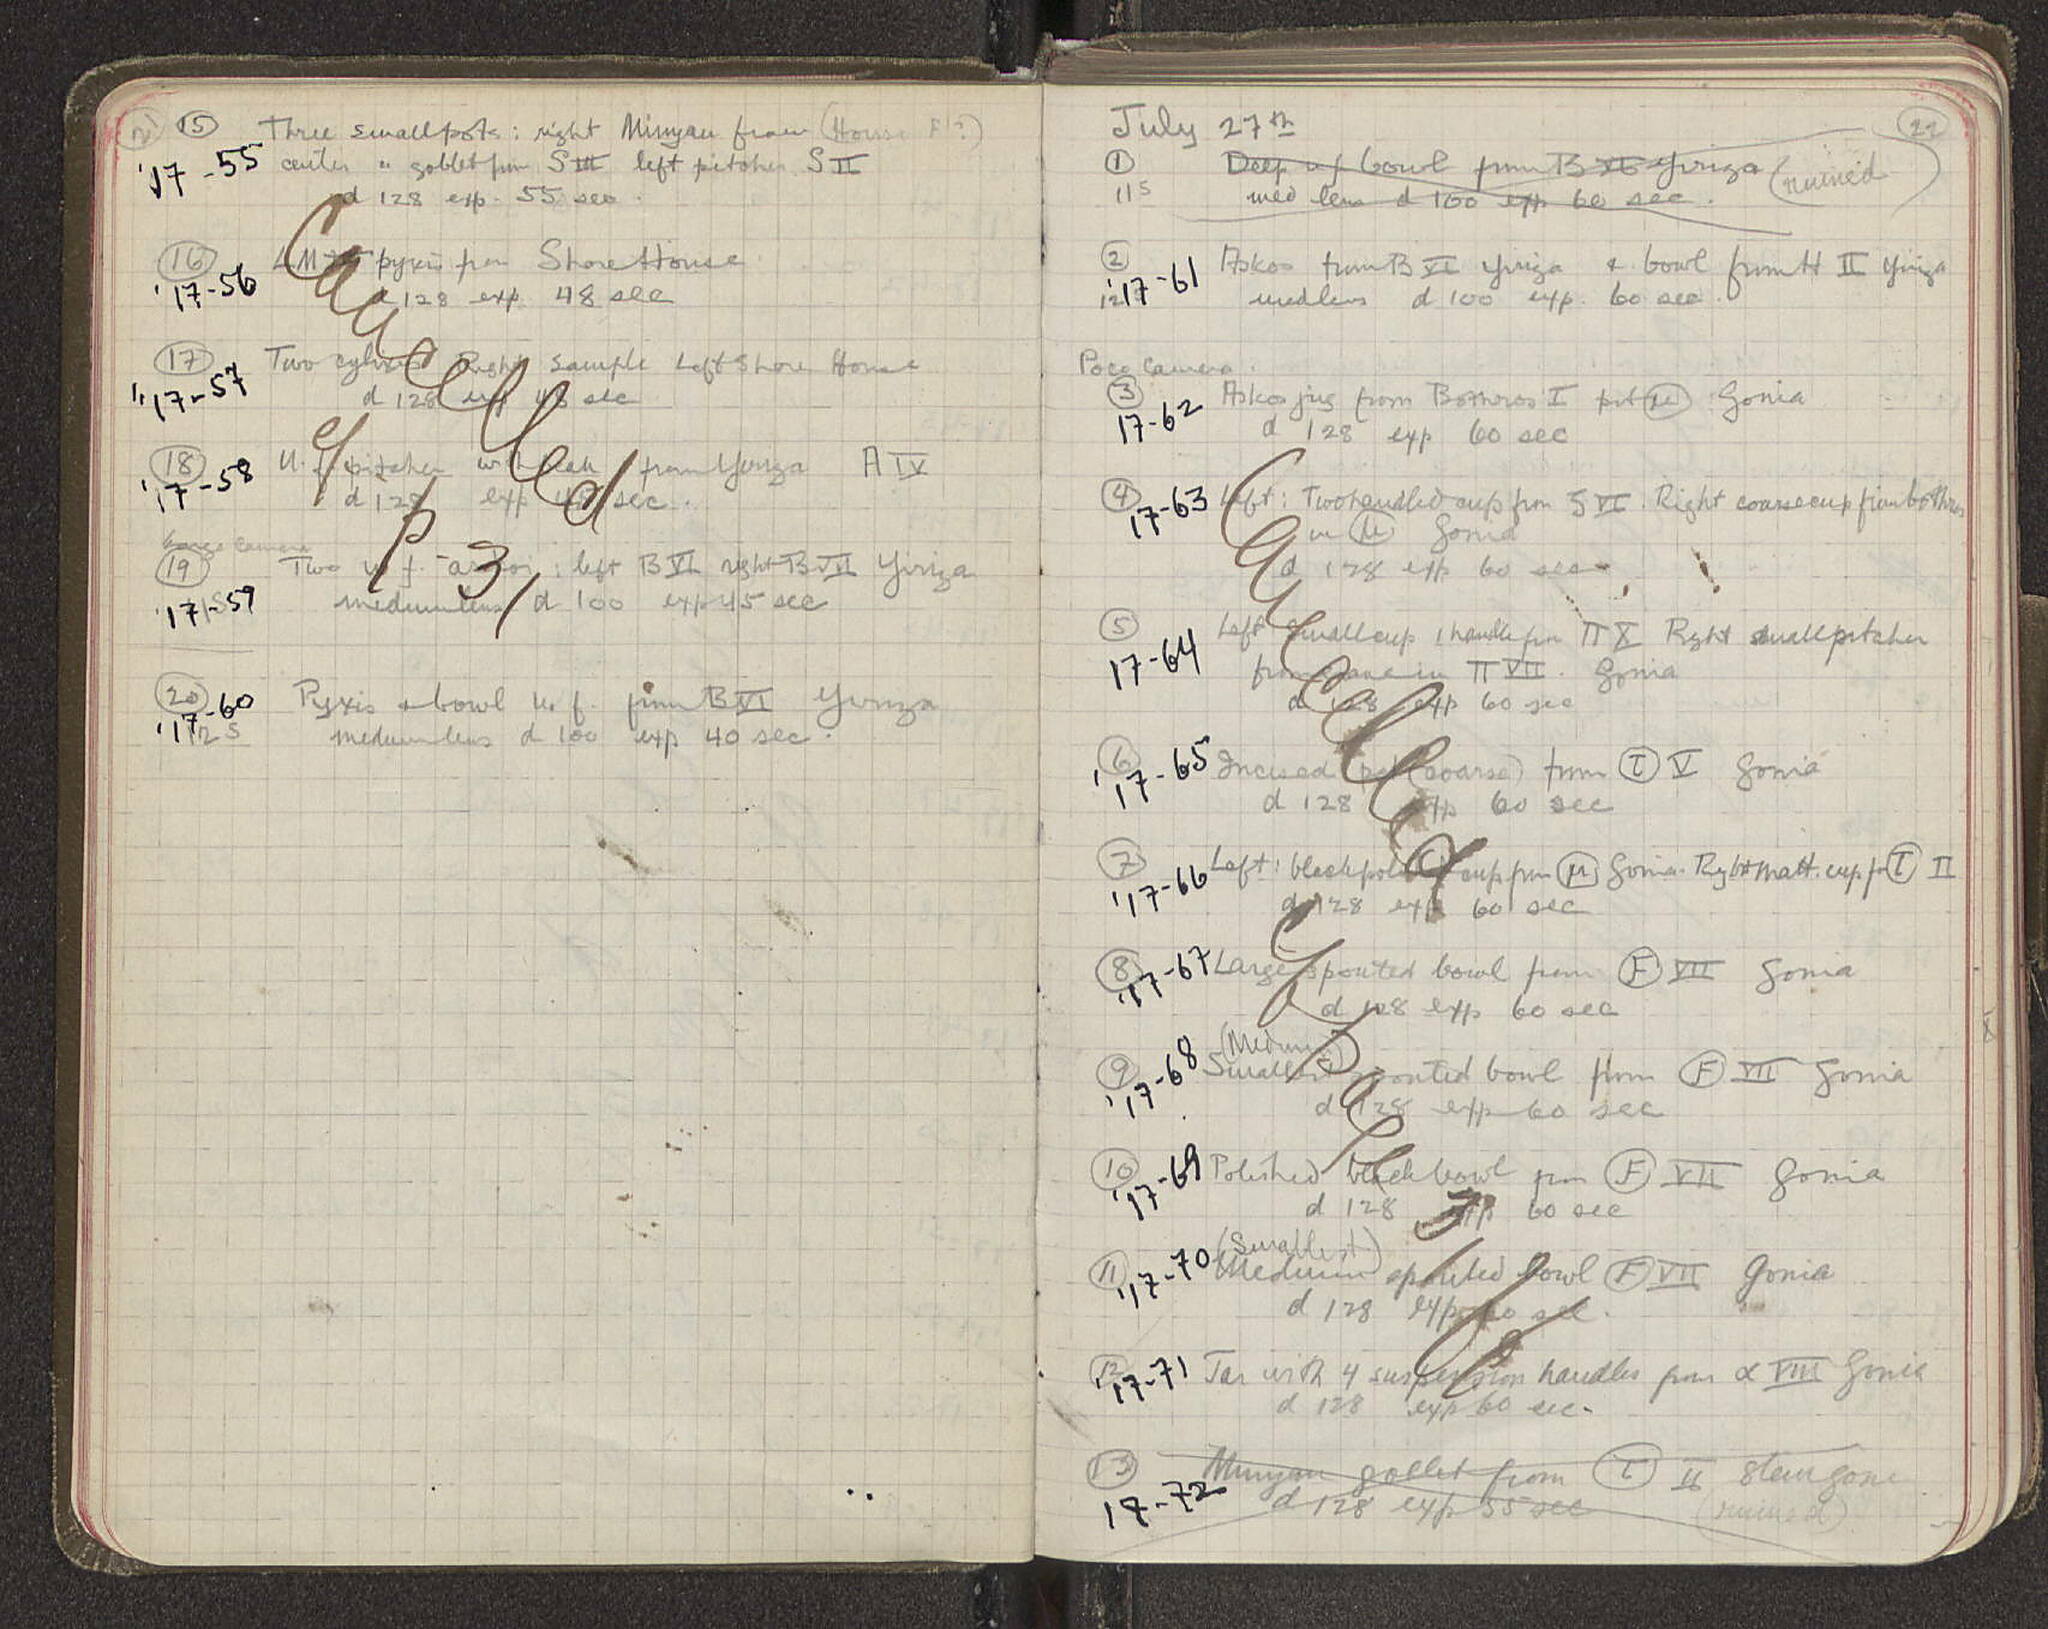 21
15 Three small pots: right Minyan from (House F?)
'17-55 center " goblet from S III left pitcher S II
d 128 exp. 55 sec.
16 LM pyxis from Shore House
'17-56 d 128 exp 48 sec
17 Two cylixes Right sample Left Shore House
'17-57 d 128 exp 48 sec
18 U. f. pitcher with from Yiriza A IV
'17-58 d 128 exp sec.
Large Camera
19 Two u. f. askoi: left B VI right B VII Yiriza
'17-59 medium lens d 100 exp 45 sec
20 Pyxis & bowl u. f. from B VI Yiriza
'17-60
12 S medium lens d 100 exp 40 sec.
Cancelled
cf p 31
22
July 27th
1 Deep u f bowl from B VI Yiriza (ruined
11 S med lens d 100 exp 60 sec.
2 Askos from B VI Yiriza & bowl from H II Yiriza
'17-61 med lens d 100 exp. 60 sec.
Poco Camera.
3 Askos jug from Bothros I pit μ Gonia
17-62 d 128 exp 60 sec
4 17-63 Left: Two handled cup from S VI. Right coarse cup from bothros
in μ Gonia
d 128 exp 60 sec
5 Left small cup 1 handle from Π X Right small pitcher
17-64 from in Π VII. Gonia
d 128 exp 60 sec
6 '17-65 Incised pot (coarse) from τ V Gonia
d 128 exp 60 sec
7 '17-66 Left: black polished cup from μ Gonia. Right matt. cup fr τ II
d 128 exp 60 sec
8 '17-67 Large spouted bowl from F VII Gonia
d 128 exp 60 sec
(Medium)
9 '17-68 Smallest spouted bowl from F VII Gonia
d 128 exp 60 sec
10 '17-69 Polished black bowl from F VII Gonia
d 128 exp 60 sec
(Smallest)
11 '17-70 Medium spouted bowl F VII Gonia
d 128 exp 60 sec.
12 '17-71 Jar with 4 suspension handles from α VIII Gonia
d 128 exp 60 sec.
13 Minyan goblet from τ II stem Gonia
17-72 d 128 exp 55 sec (ruined)
Cancelled
cf